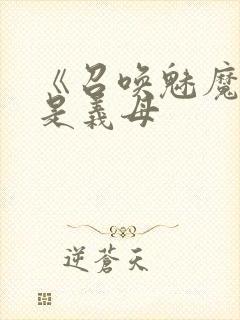 《召唤魅魔
是義母
逆蒼天